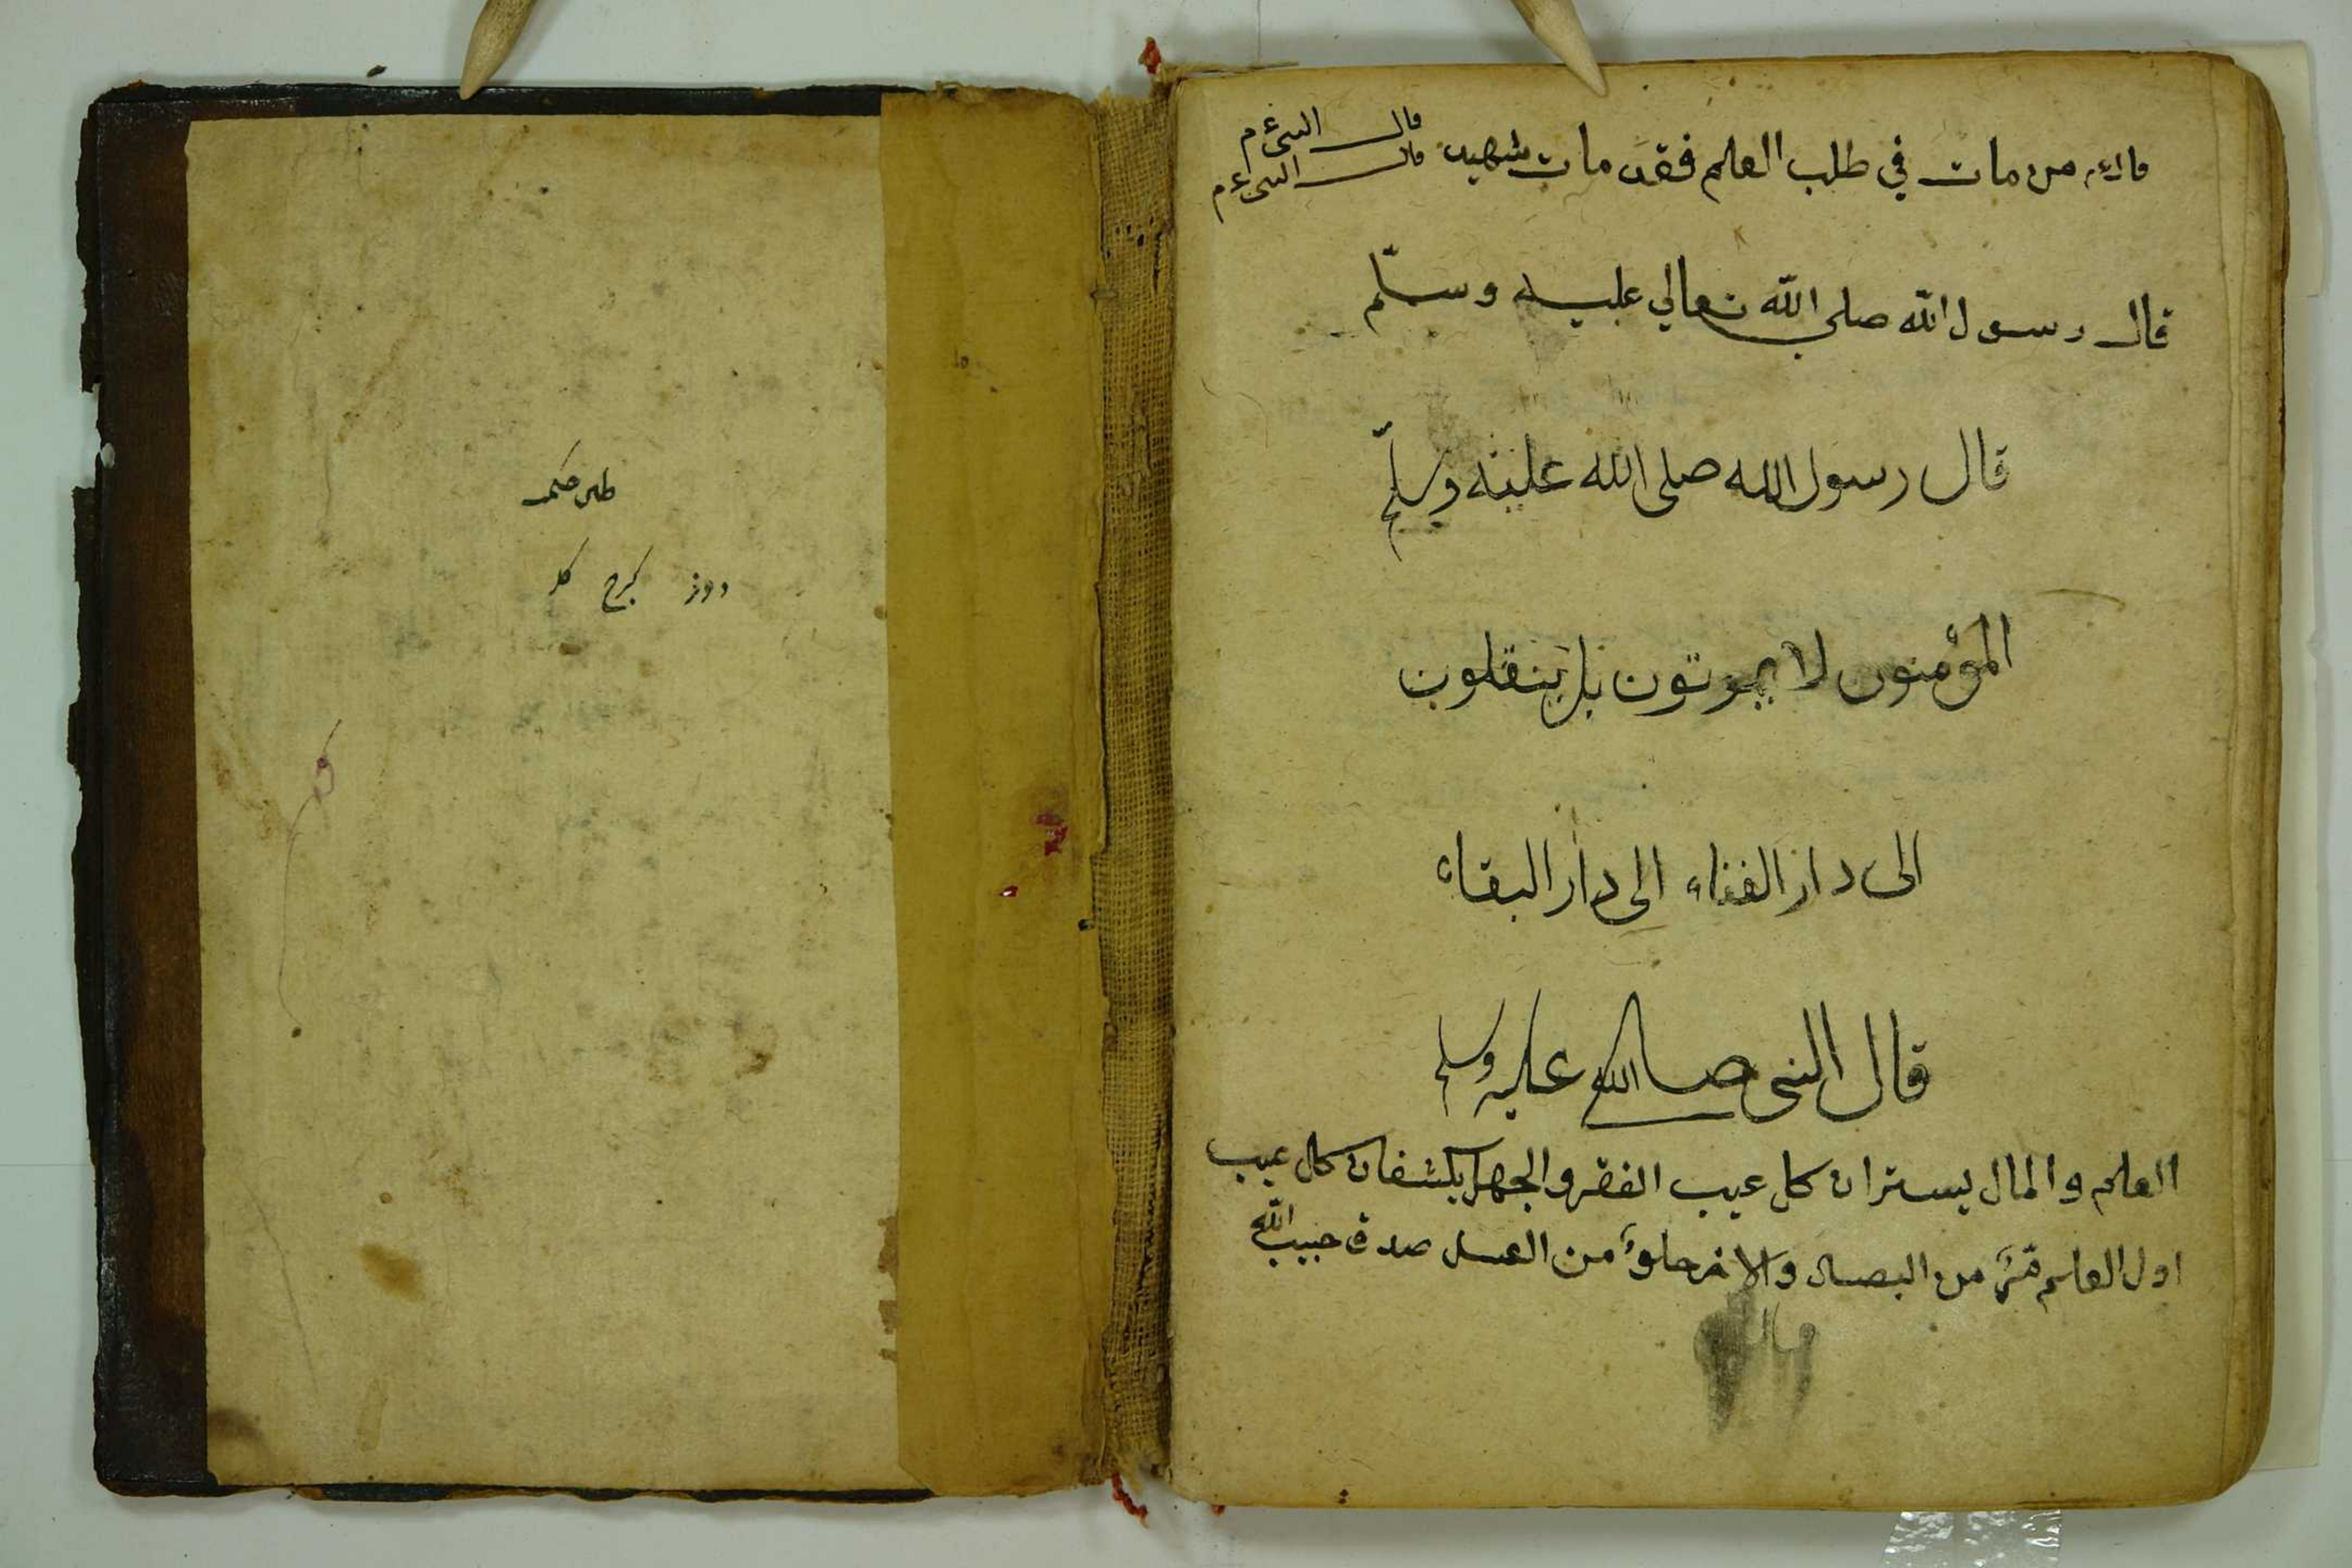 قال ع م من مات في طلب العلم فقد مات شهيد قال النبى ع م
قال النبى ع م
قال رسول الله صلى الله تعالي عليه وسلّم
قال رسول الله صلى الله عليه وسلّم
المؤمنون لا يموتون بل ينقلون
الى دار الفناء الى دار البقاء
قال النبى صلى الله عليه وسلم
العلم والمال يستران كل عيب الفقر والجهل يكشفان كل عيب
اول العلم مّرٌ من البصال والاخر حلوٌ من العسل صدق حبيب الله